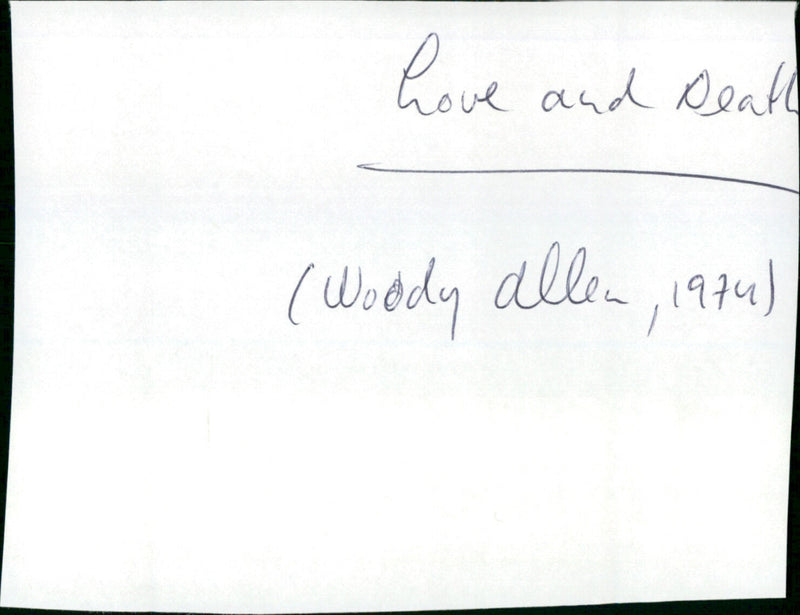 Love and Death
(Woody Allen, 1974)